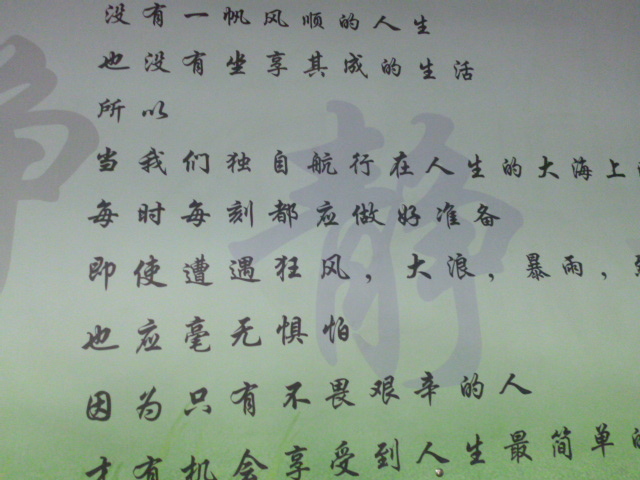 没有一帆风顺的人生
也没有坐享其成的生活
所以
当我们独自航行在人生的大海上
每时每刻都应做好准备
即使遭遇狂风，大浪，暴雨，
也应毫无惧怕
因为只有不畏艰辛的人
才有机会享受到人生最简单的
静